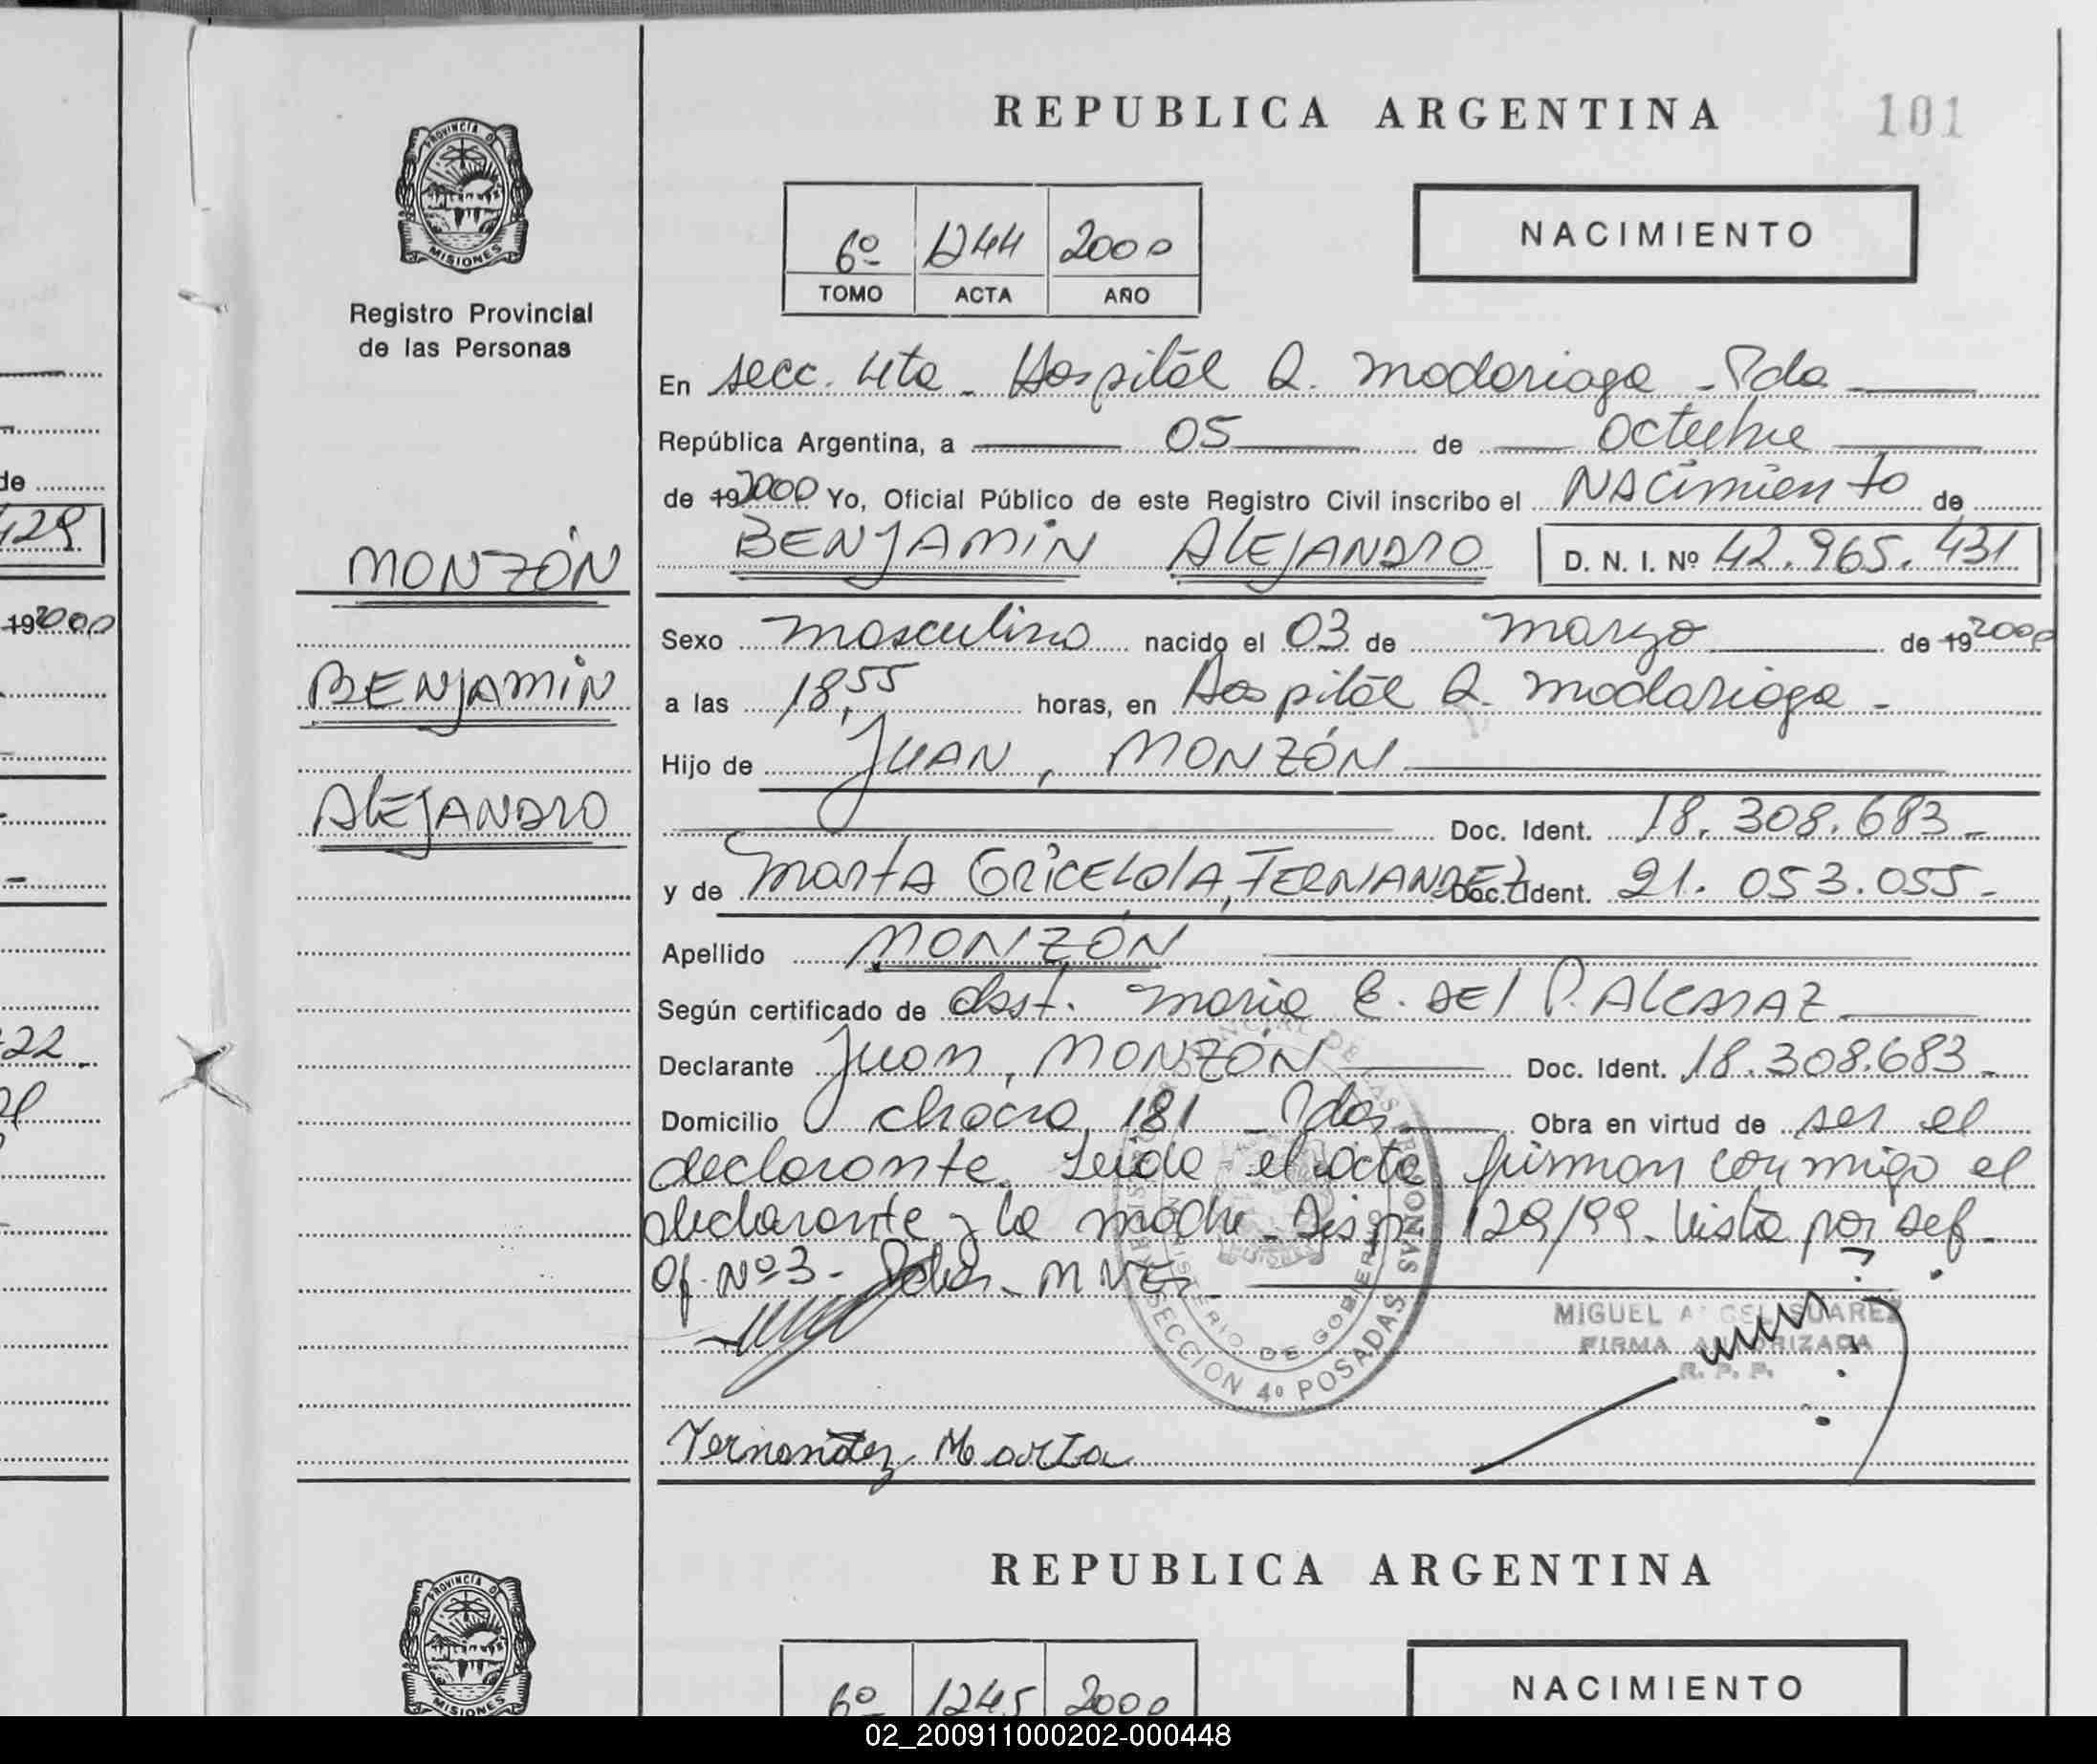 REPUBLICA ARGENTINA
101
PROVINCIA DE
MISIONES
Registro Provincial
de las Personas
6º 1244 2000
TOMO ACTA AÑO
NACIMIENTO
En secc. 4ta - Hospital R. Madariaga - Pdas
República Argentina, a 05 de Octubre
de 192000 Yo, Oficial Público de este Registro Civil inscribo el NACimiento de
BENJAMiN ALEJANDRO D. N. I. Nº 42.965.431
MONZÓN
BENJAMiN
ALEJANDRO
Sexo masculino nacido el 03 de marzo de 192000
a las 18,55 horas, en Hospital R. Madariaga -
Hijo de JUAN, MONZÓN
Doc. Ident. 18.308.683-
y de MARTA GRICELDA, FERNANDEZ Doc. Ident. 21.053.055-
Apellido MONZÓN
Según certificado de Obst. Maria E. DEl P. AlCARAZ
Declarante Juan, MONZÓN Doc. Ident. 18.308.683-
Domicilio chaco 181 - Pdas, Obra en virtud de ser el
declarante. Leida el acta firman conmigo el
declarante y la madre - Disp. 129/99. Vista por Def.
Of. Nº 3 - Pdas.
REGISTRO PROVINCIAL DE LAS PERSONAS
MINISTERIO DE GOBIERNO
SECCION 4º POSADAS
MIGUEL ANGEL SUAREZ
FIRMA AUTORIZADA
R. P. P.
Fernandez Marta
REPUBLICA ARGENTINA
PROVINCIA DE
MISIONES
6º 1245 2000
NACIMIENTO
de
429
192000
22
02_200911000202-000448